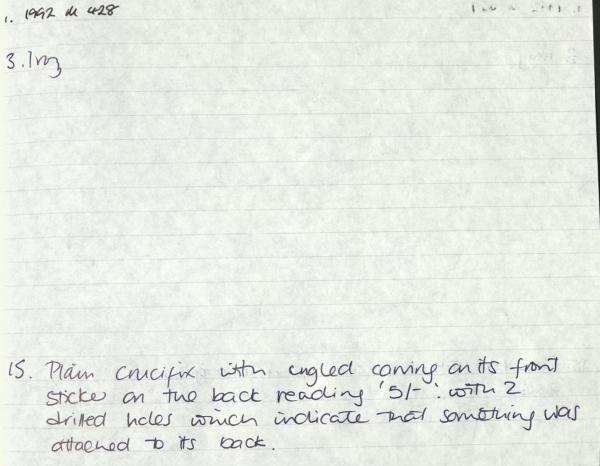 1. 1992 M 428
3. Irg
15. Plain crucifix with angled carving on its front
sticker on the back reading '5/-'. with 2
drilled holes which indicate that something was
attached to its back.